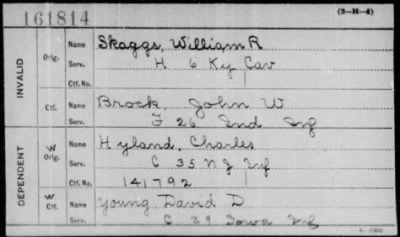 161814
(3-H-4)
INVALID
Orig.
Name Skaggs, William R
Serv. H 6 Ky Cav
Ctf. No.
Ctf.
Name Brock, John W
Serv. F 26 Ind Inf
DEPENDENT
W
Orig.
Name Hyland, Charles
Serv. C 35 N J Inf
Ctf. No. 141792
W
Ctf.
Name Young, David D
Serv. C 29 Iowa Inf